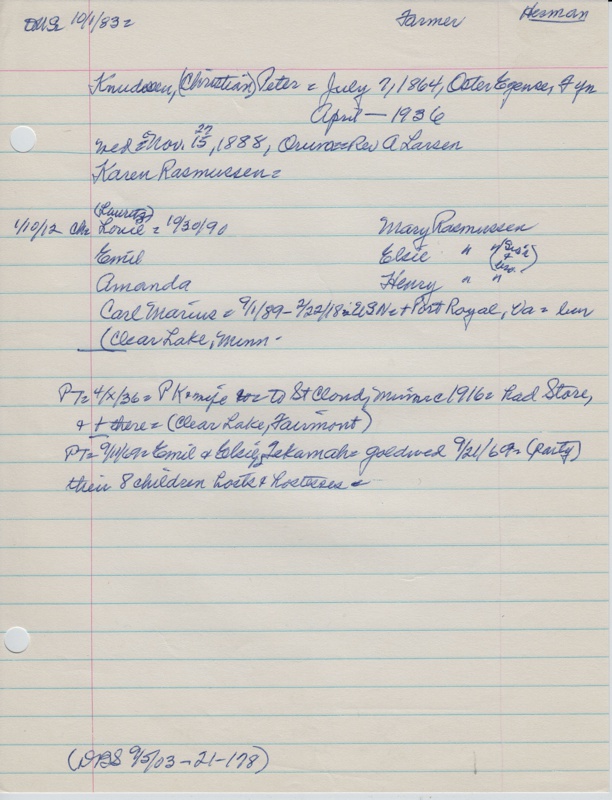 10/1/83= Farmer Herman
Knudsen, (Christian) Peter = July 7, 1864, Oster Egense, Fyn
April — 1936
wed = Nov. 15, 27 1888, Orum = Rev A Larsen
Karen Rasmussen =
(Lauritz)
1/10/12 Ch= Louie = 10/30/90 Mary Rasmussen
Emil Elsie "
Amanda Henry " "
Carl Marius = 9/1/89 - 2/22/18 = USN = + Port Royal, Va = bur
(Clear Lake, Minn -
PT= 4/x/36 = PK + wife to St Cloud, Minn c 1916 = had Store,
+ + there = (Clear Lake, Fairmont)
PT= 9/11/69 = Emil & Elsie, Tekamah = goldwed 9/21/69 = (party)
their 8 children hosts & hostesses
(DBS 9/5/03 - 21 - 178)